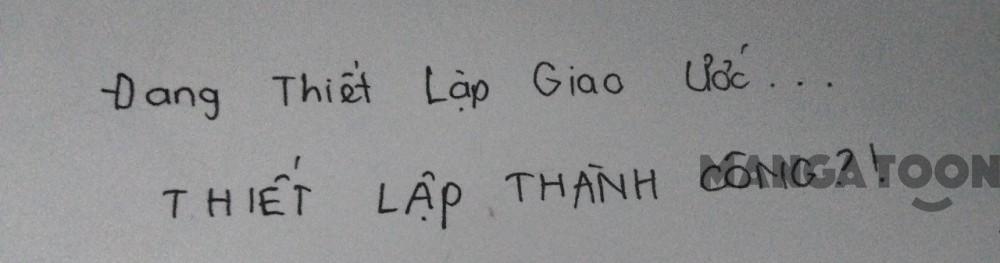 Đang Thiết Lập Giao Ước...
THIẾT LẬP THÀNH CÔNG?!
MANGATOON